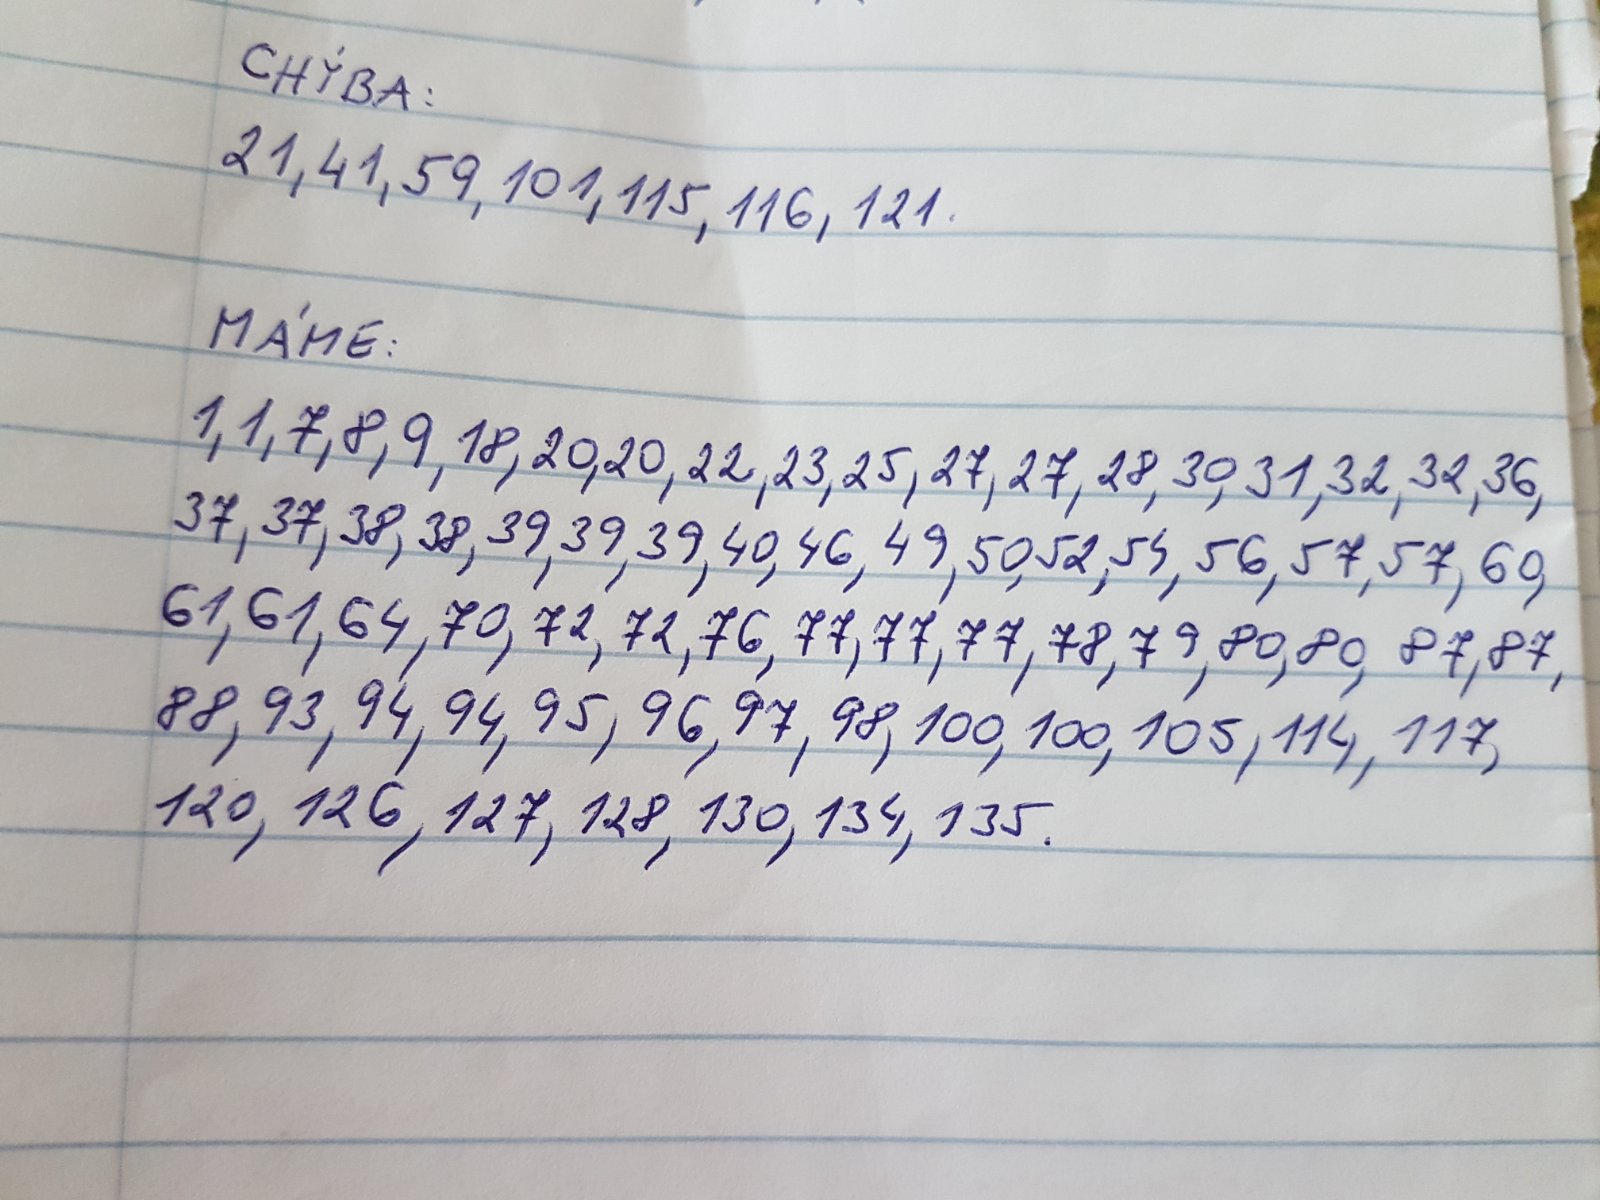 CHÝBA:
21, 41, 59, 101, 115, 116, 121.
MÁME:
1, 1, 7, 8, 9, 18, 20, 20, 22, 23, 25, 27, 27, 28, 30, 31, 32, 32, 36,
37, 37, 38, 38, 39, 39, 39, 40, 46, 49, 50, 52, 54, 56, 57, 57, 60,
61, 61, 64, 70, 72, 72, 76, 77, 77, 77, 78, 79, 80, 80, 87, 87,
88, 93, 94, 94, 95, 96, 97, 98, 100, 100, 105, 114, 117,
120, 126, 127, 128, 130, 134, 135.